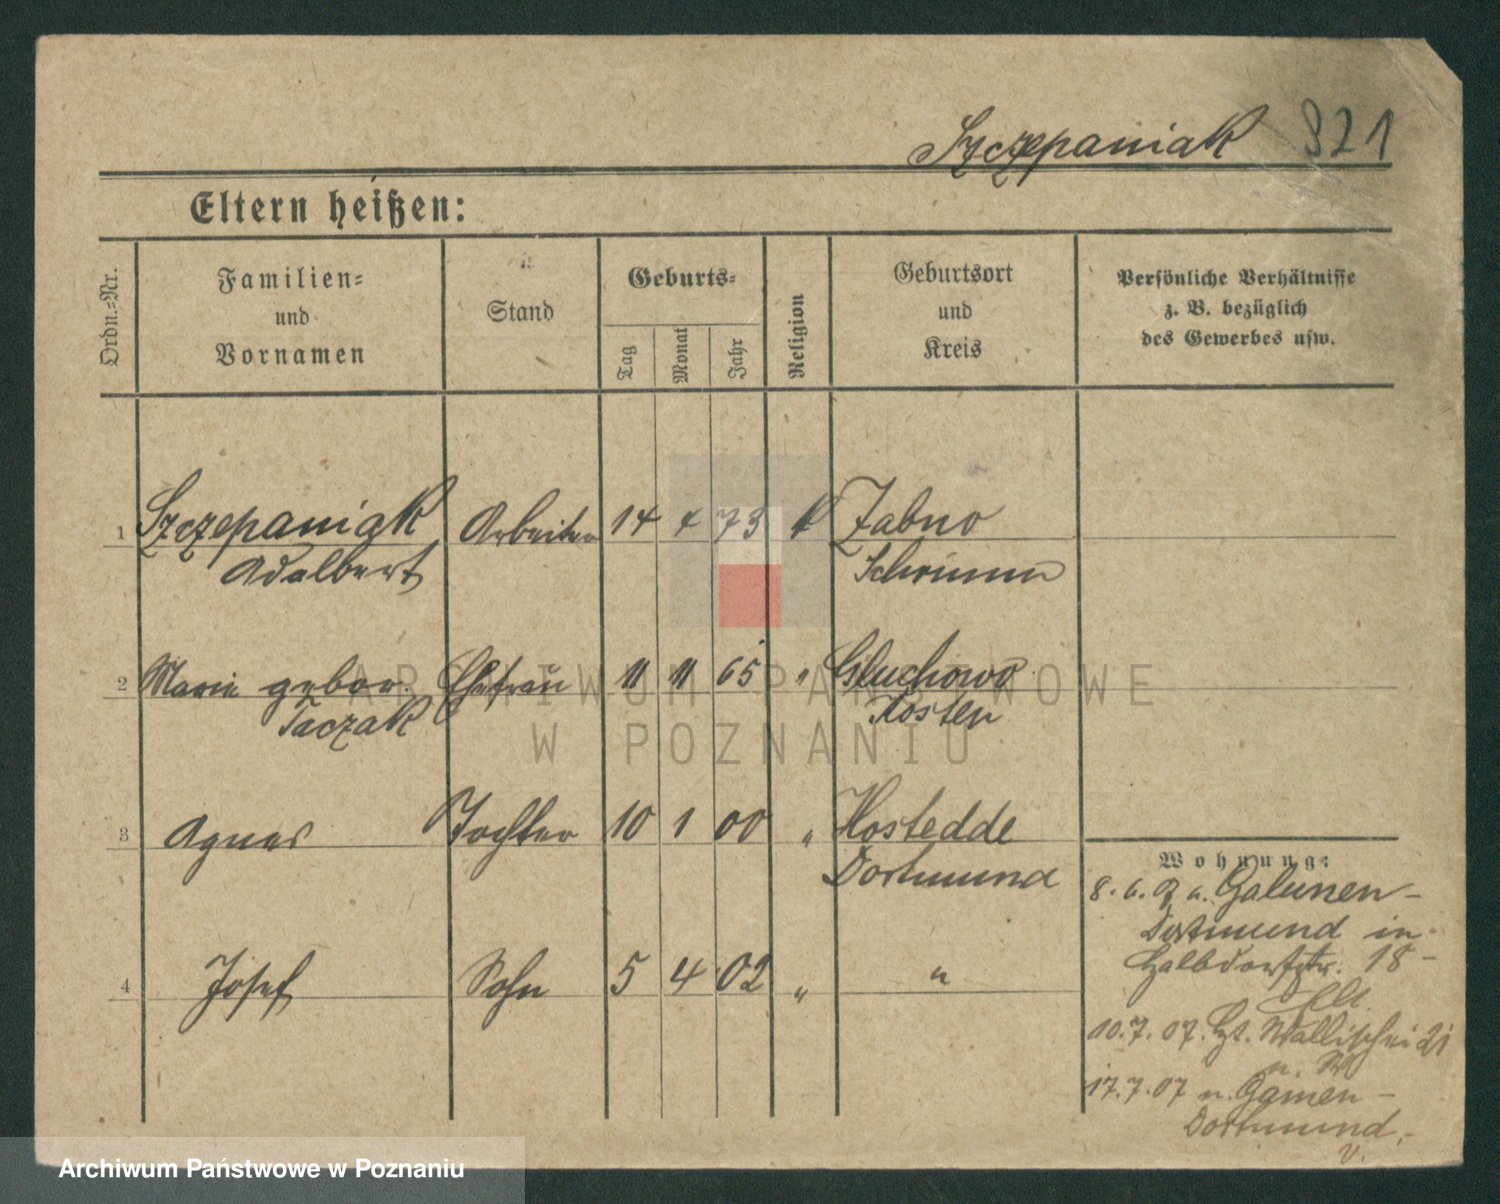 Szczepaniak 321
Eltern heißen:
Ordn.-Nr.
Familien-
und
Vornamen
Stand
Geburts-
Tag
Monat
Jahr
Religion
Geburtsort
und
Kreis
Persönliche Verhältnisse
z. B. bezüglich
des Gewerbes usw.
1 Szczepaniak Arbeiter 14 4 73 k Zabno
Adalbert Schrimm
2 Marie gebor. Ehefrau 11 11 65 " Gluchowo
Taczak Kosten
3 Agnes Tochter 10 1 00 " Hostedde
Dortmund
Wohnung:
8.6.07 a. Galunen-
Dortmund in
Halbdorfstr. 18-
4 Josef Sohn 5 4 02 " "
10.7.07. Wallischei 21
17.7.07 n. Gamen-
Dortmund.
ARCHIWUM PAŃSTWOWE
W POZNANIU
Archiwum Państwowe w Poznaniu